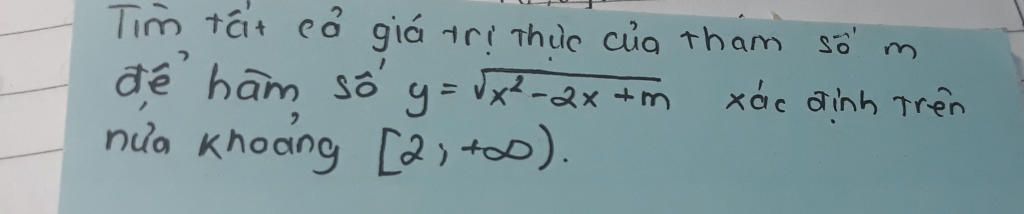 Tìm tất cả giá trị thực của tham số m
để hàm số y = √x² - 2x + m xác định trên
nửa khoảng [2; +∞).